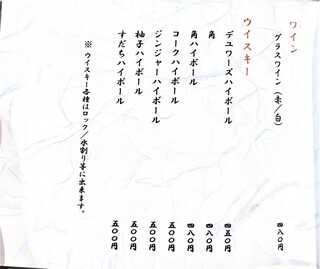 ワイン
グラスワイン（赤／白） 四八〇円
ウイスキー
デュワーズハイボール 四五〇円
角 四八〇円
角ハイボール 四八〇円
コークハイボール 五〇〇円
ジンジャーハイボール 五〇〇円
柚子ハイボール 五〇〇円
すだちハイボール 五〇〇円
※ウイスキー各種はロック／水割り等に出来ます。